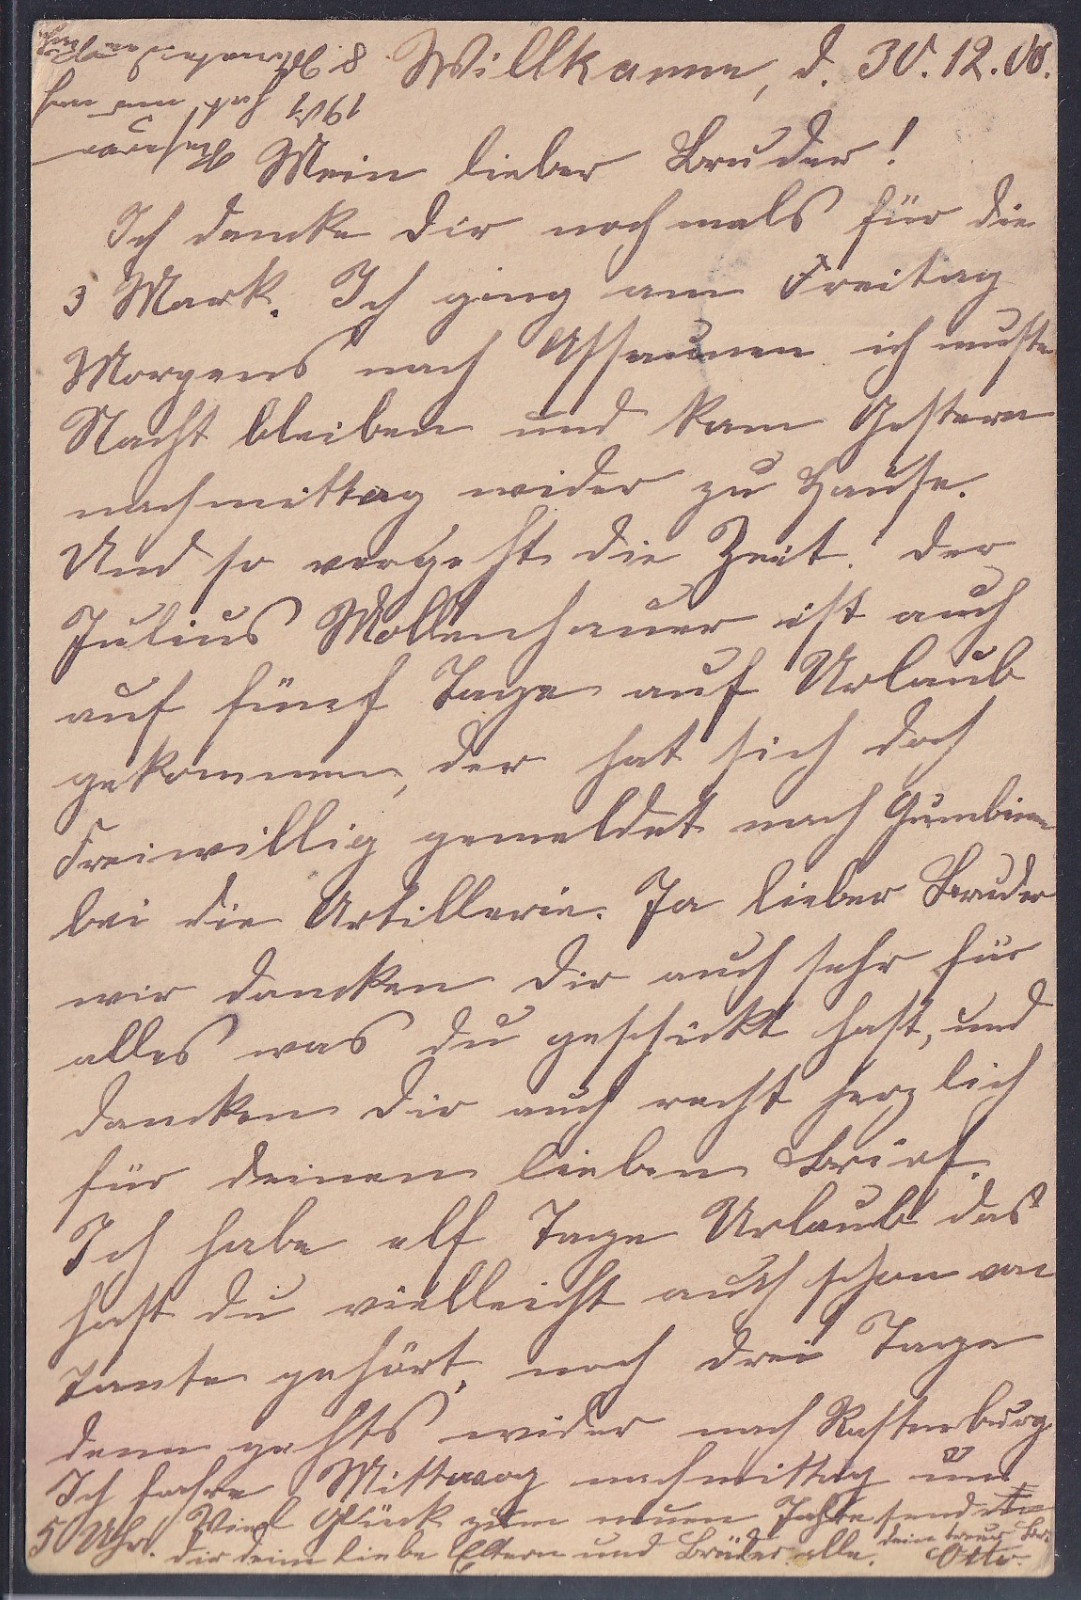 Willkamm, d. 30.12.00.
Mein lieber Bruder!
Ich dancke dir noch mals für die
3 Mark. Ich ging am Freitag
Morgens nach Assaunen ich mußte
Nacht bleiben und kam Gestern
nachmittag wider zu Hause.
Und so vergeht die Zeit. der
Julius Mollenhauer ist auch
auf fünf Tage auf Urlaub
gekommen, der hat sich doch
Freiwillig gemeldet nach Gumbinn
bei die Artillerie. Ja lieber Bruder
wir dancken dir auch sehr für
alles was du geschickt hast, und
dancken dir auch recht herzlich
für deinen lieben Brief.
Ich habe elf Tage Urlaub das
hast du vielleicht auch schon von
Tante gehört, noch drei Tage
denn gehts wider nach Rastenburg
Ich fahre Mittwog nachmittag um
5 Uhr. Viel Glück zum neuen Jahre sendet
dir deine liebe Eltern und Brüder alle. dein treuer Br.
Otto.
8
1901